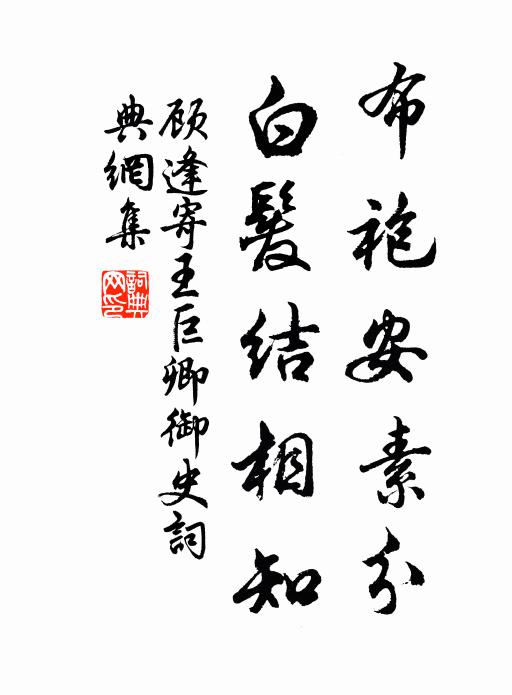 布袍安素分
白髮結相知
顾逢寄王巨卿御史詞
典網集
詞典网印